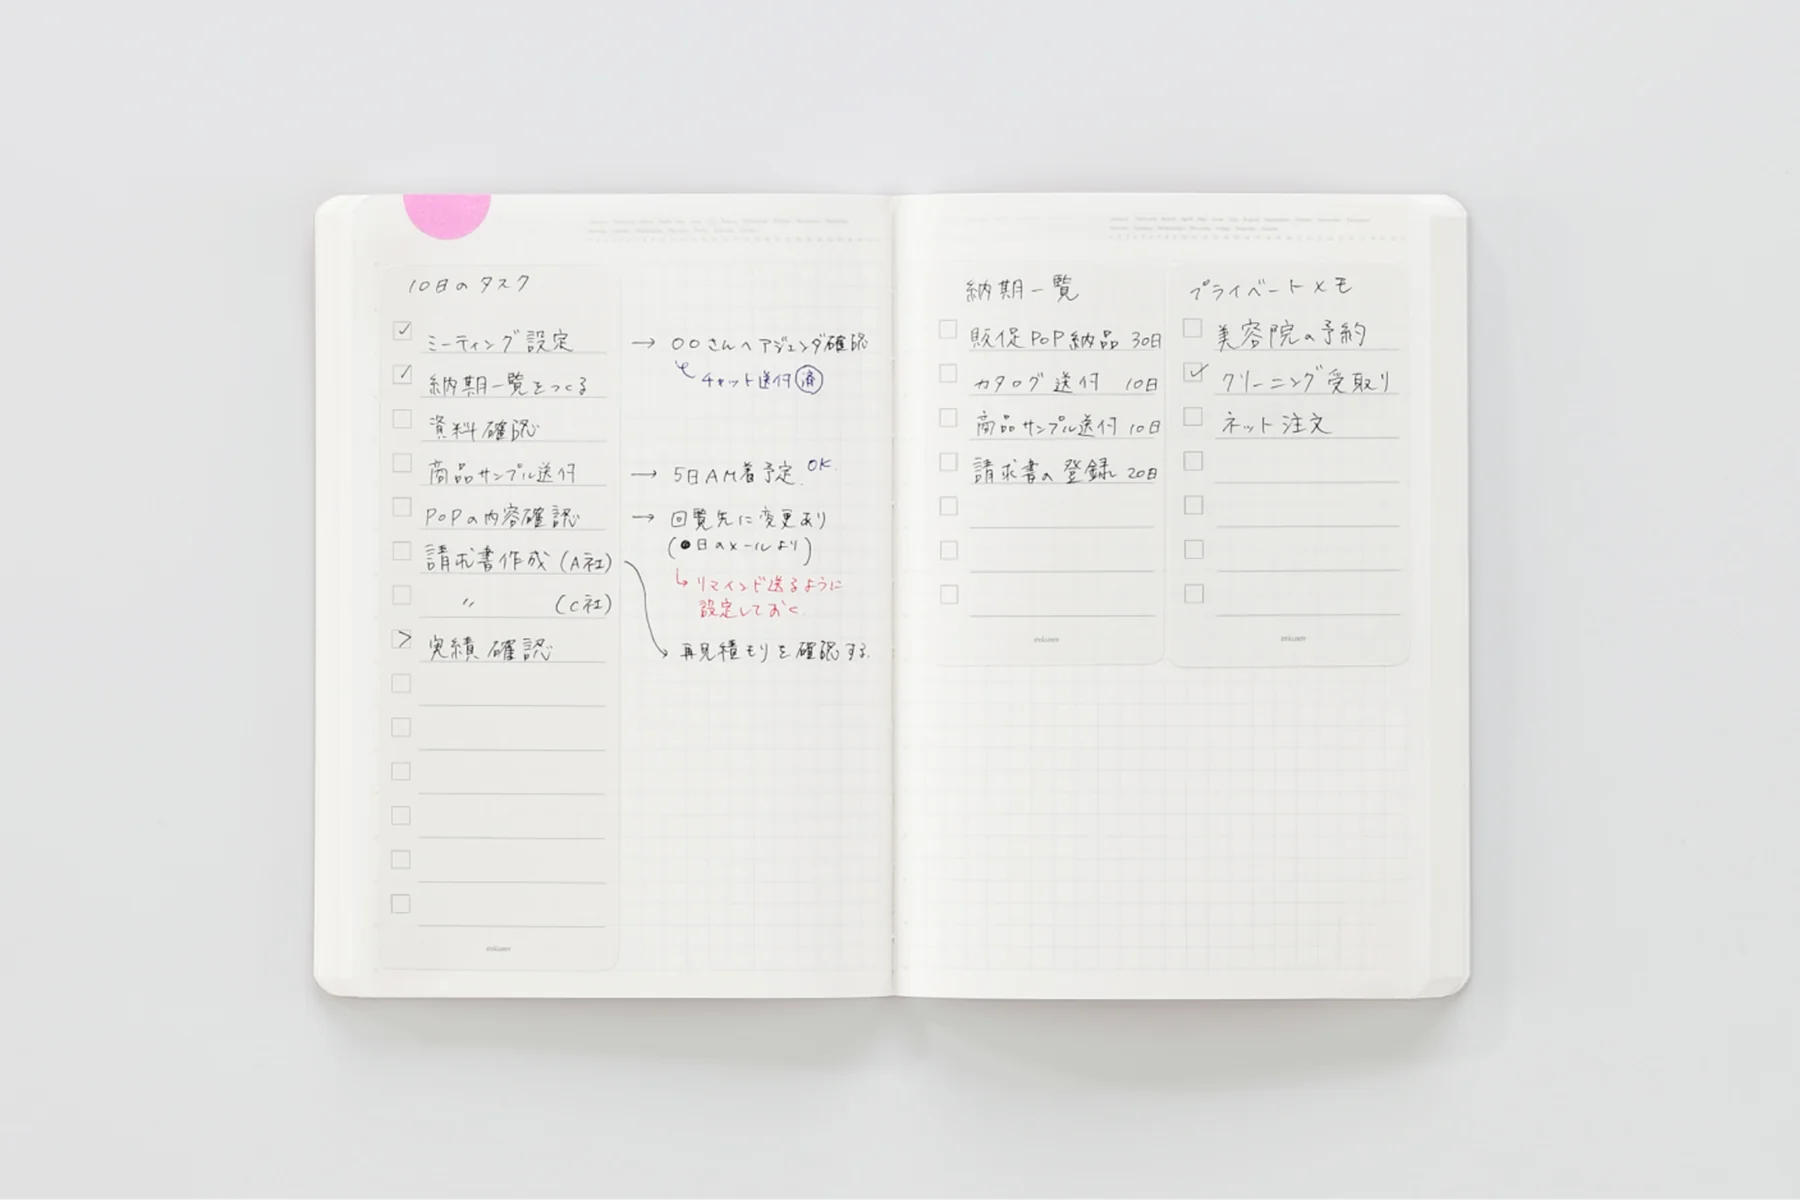 10日のタスク
ミーティング設定
納期一覧をつくる
資料確認
商品サンプル送付
POPの内容確認
請求書作成(A社)
〃 (C社)
実績確認
→ 〇〇さんへアジェンダ確認
チャット送付済
→ 5日AM着予定 OK.
→ 回覧先に変更あり
(●日のメールより)
リマインド送るように
設定しておく
再見積もりを確認する.
納期一覧
販促POP納品 30日
カタログ送付 10日
商品サンプル送付 10日
請求書の登録 20日
プライベートメモ
美容院の予約
クリーニング受取り
ネット注文